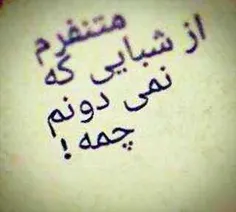 متنفرم
از شبایی که
نمی دونم
چمه!